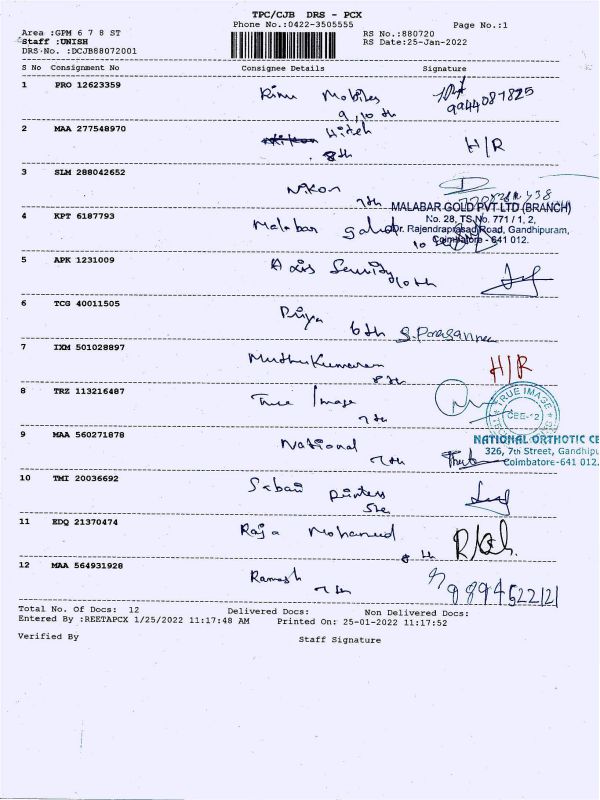 TPC/CJB DRS - PCX
Phone No.:0422-3505555
Page No.:1
Area :GPM 6 7 8 ST
RS No.:880720
Staff :UNISH
RS Date:25-Jan-2022
DRS No. :DCJB88072001
S No Consignment No Consignee Details Signature
1 PRO 12623359
Rimu Mobiles
9,10 th
9944087825
2 MAA 277548970
Hitech
8th
H/R
3 SLM 288042652
Nikon
7th
MALABAR GOLD PVT LTD (BRANCH)
No. 28, TS No. 771 / 1, 2,
4 KPT 6187793
Malabar gold
Dr. Rajendraprasad Road, Gandhipuram,
10
Coimbatore - 641 012.
5 APK 1231009
Axis Security
10th
6 TCG 40011505
Priya
6th S.Porasanna
7 IXM 501028897
Muthukumaran
8th
H/R
8 TRZ 113216487
True Image
7th
TRUE IMAGE
CBE-12
9 MAA 560271878
National
7th
NATIONAL ORTHOTIC CE
326, 7th Street, Gandhipu
Coimbatore-641 012.
10 TMI 20036692
Sabari Printers
5th
11 EDQ 21370474
Raja Mohamed
8 th
12 MAA 564931928
Ramesh
7th
9894522121
Total No. Of Docs: 12 Delivered Docs: Non Delivered Docs:
Entered By :REETAPCX 1/25/2022 11:17:48 AM Printed On: 25-01-2022 11:17:52
Verified By Staff Signature